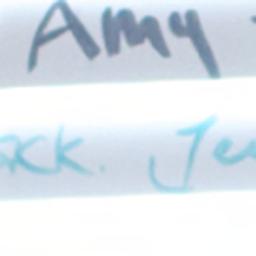 Amy
ack. Je